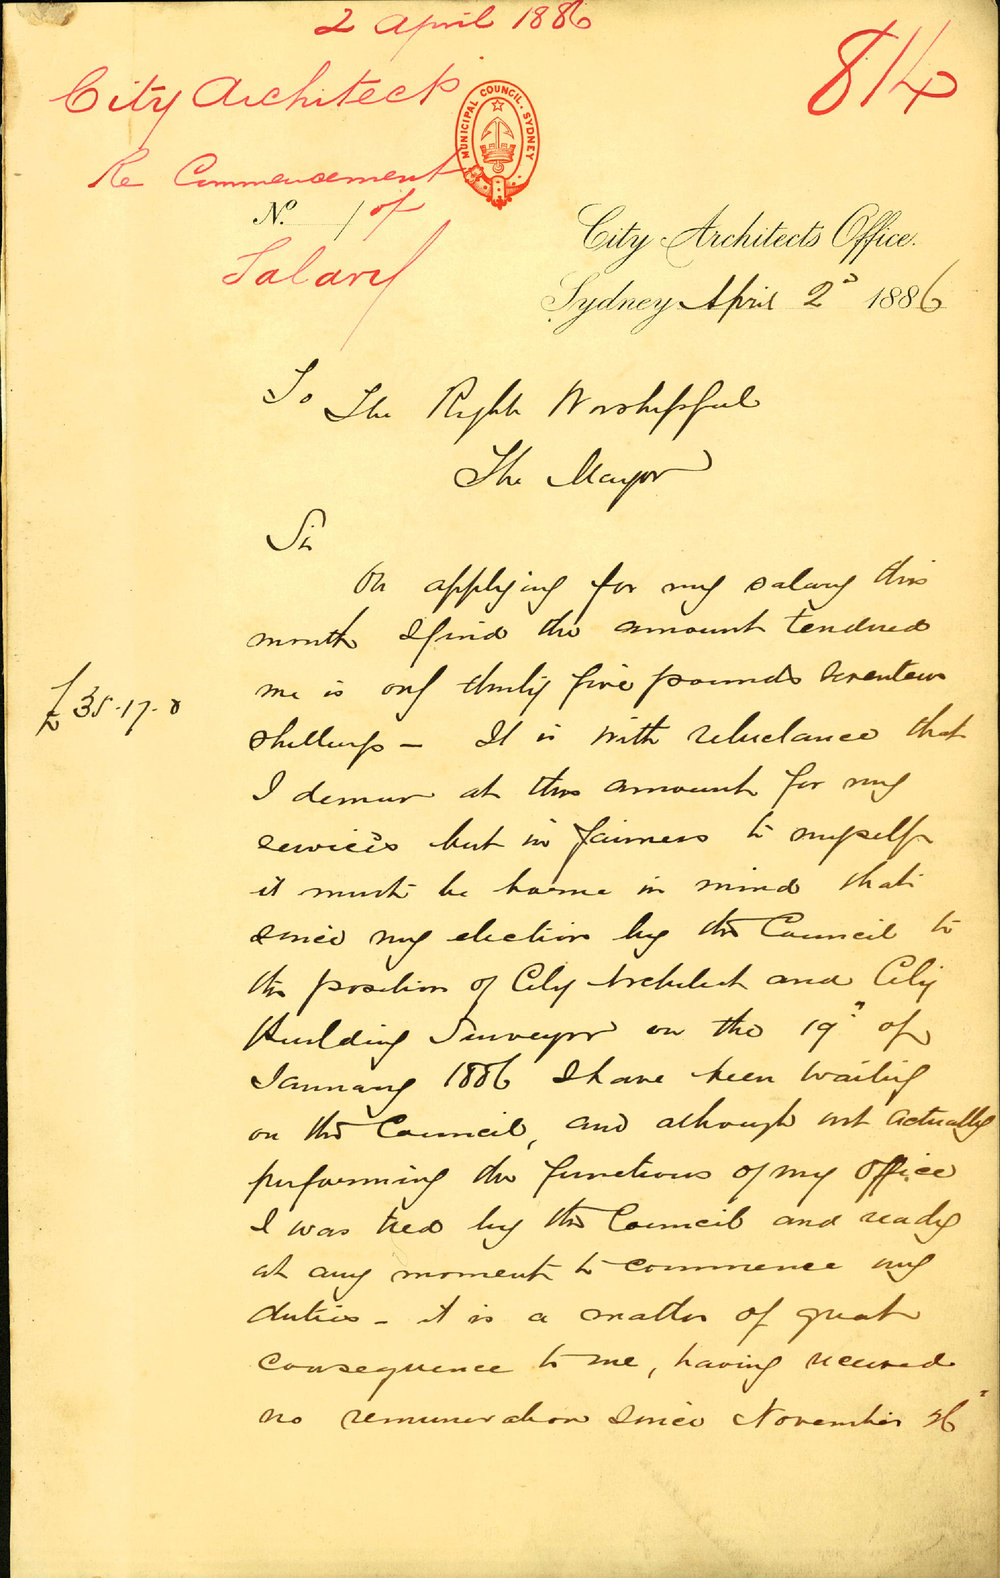 2 April 1886
814
City Architect
MUNICIPAL COUNCIL. SYDNEY
Re Commencement
No. / of
Salary
City Architects Office.
Sydney April 2d 1886
To The Right Worshipful
The Mayor
Sir
On applying for my salary this
month I find the amount tendered
me is only thirty five pounds seventeen
£35.17.0
shillings – It is with reluctance that
I demur at this amount for my
services but in fairness to myself
it must be borne in mind that
since my election by the Council to
the position of City Architect and City
Building Surveyor on the 19th of
January 1886 I have been waiting
on the Council, and although not actually
performing the functions of my office
I was tied by the Council and ready
at any moment to commence my
duties – it is a matter of great
consequence to me, having received
no remuneration since November 26th